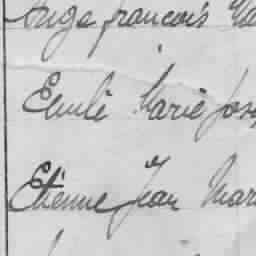 Ange françois
Emile Marie Jos
Etienne Jean Mar